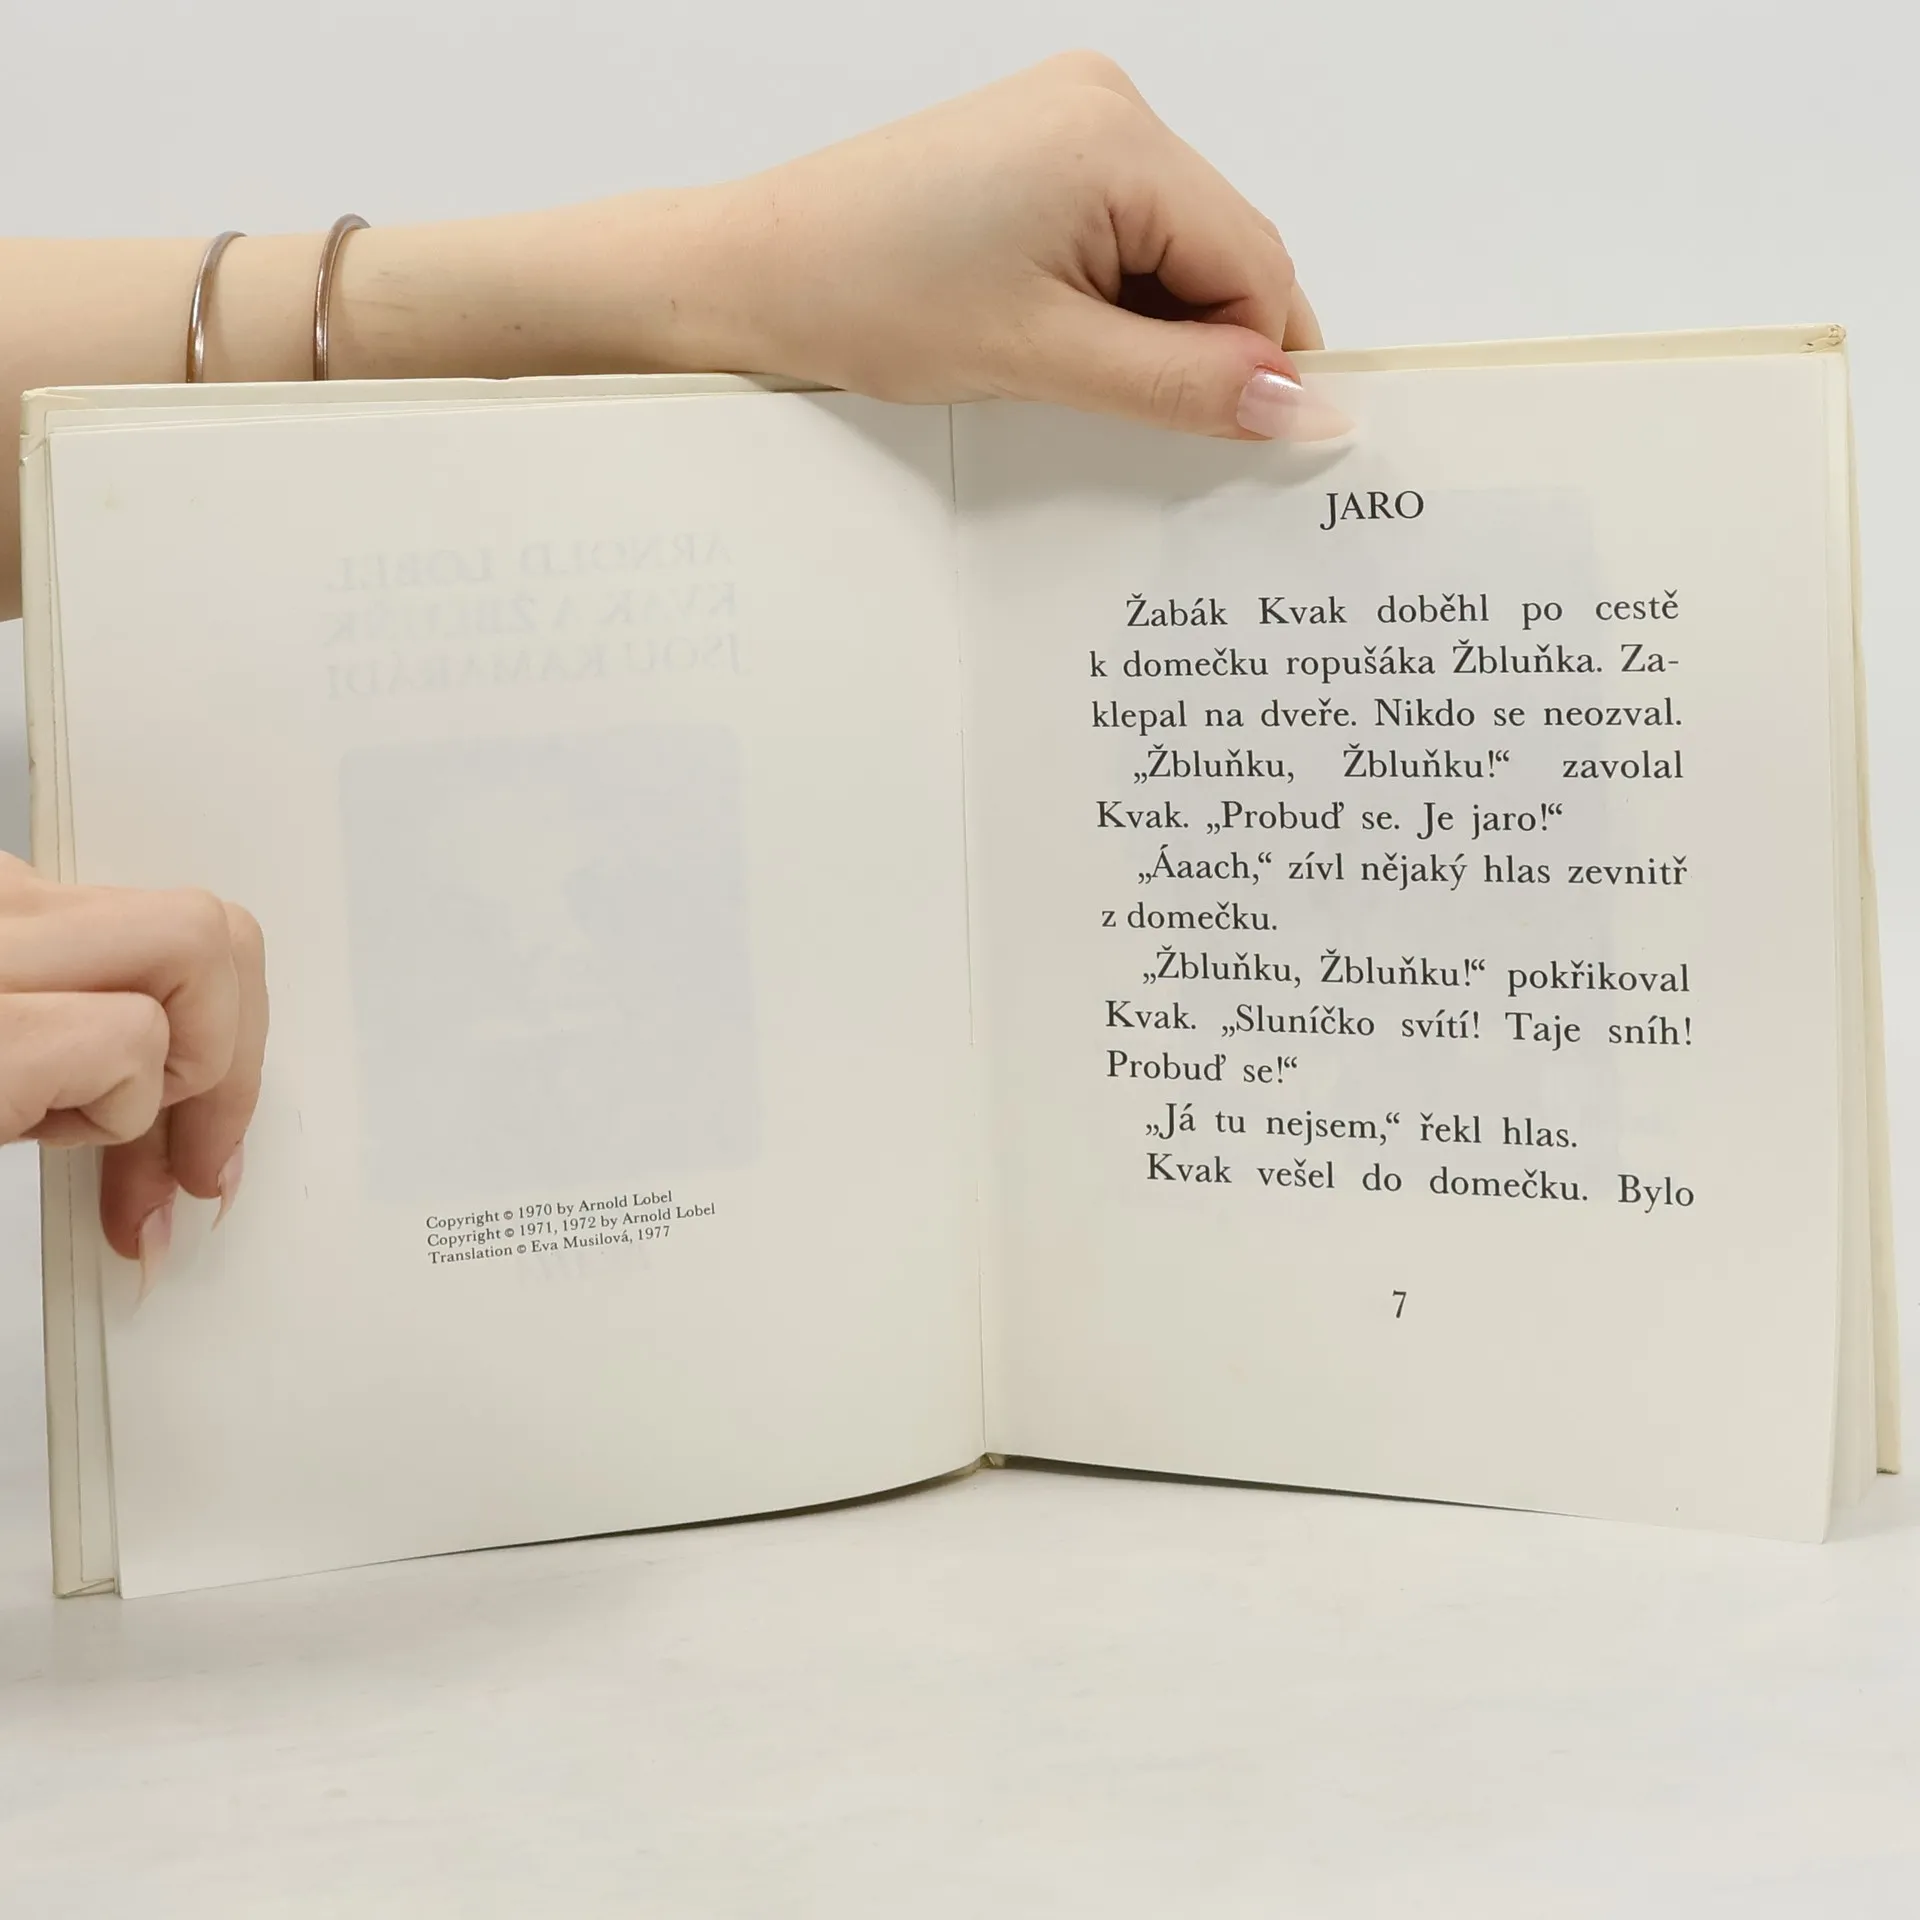 ARNOLD LOBEL
KVAK A ŽBLUŇK
JSOU KAMARÁDI
Copyright © 1970 by Arnold Lobel
Copyright © 1971, 1972 by Arnold Lobel
Translation © Eva Musilová, 1977
JARO
Žabák Kvak doběhl po cestě
k domečku ropušáka Žbluňka. Za-
klepal na dveře. Nikdo se neozval.
„Žbluňku, Žbluňku!“ zavolal
Kvak. „Probuď se. Je jaro!“
„Áaach,“ zívl nějaký hlas zevnitř
z domečku.
„Žbluňku, Žbluňku!“ pokřikoval
Kvak. „Sluníčko svítí! Taje sníh!
Probuď se!“
„Já tu nejsem,“ řekl hlas.
Kvak vešel do domečku. Bylo
7